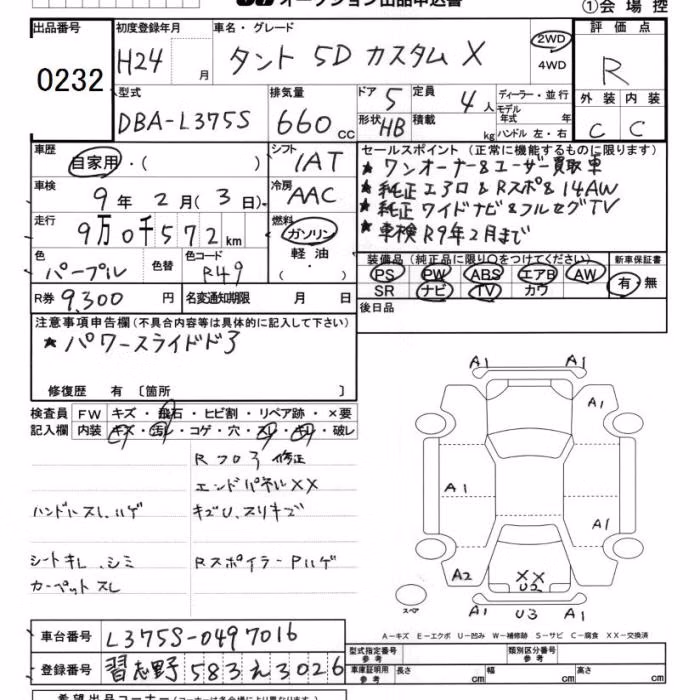 オークション出品申込書
①会場控
出品番号 0232
初度登録年月 H24 月
車名・グレード タント 5D カスタム X
2WD
4WD
評価点 R
外装 内装
C C
型式 DBA-L375S
排気量 660 cc
ドア 5 定員 4 人
形状 HB 積載 kg
ディーラー・並行
モデル年式 年
ハンドル 左・右
車歴 自家用・( )
シフト IAT
車検 9年 2月( 3日)
冷房 AAC
走行 9万0千572km
燃料 ガソリン
軽油
・
色 パープル 色替 色コード R49
R券 9,300 円 名変通知期限 月 日
セールスポイント (正常に機能するものに限ります)
★ ワンオーナー&ユーザー買取車
★ 純正エアロ & Rスポ & 14AW
★ 純正ワイドナビ&フルセグTV
★ 車検R9年2月まで
装備品(純正品に限り○をつけてください) 新車保証書
PS PW ABS エアB AW 有・無
SR ナビ TV カワ
後日品
注意事項申告欄(不具合内容等は具体的に記入して下さい)
★ パワースライドドア
修復歴 有 〔箇所 〕
検査員 FW キズ・飛石・ヒビ割・リペア跡・×要
記入欄 内装 キズ・汚レ・コゲ・穴・スレ・キレ・破レ
Rフロア修正
エンドパネルXX
ハンドルスレ、ハゲ キズU、スリキズ
シートキレ、シミ RスポイラーPハゲ
カーペットスレ
A1 A1
A1
A1
A1
A2 XX
U2
A1 U3 A1
スペア
A-キズ E-エクボ U-凹み W-補修跡 S-サビ C-腐食 XX-交換済
車台番号 L375S-0497016
登録番号 習志野 583 え 3026
型式指定番号 参考 類別区分番号 参考
車庫証明用 参考 長さ cm 幅 cm 高さ cm
希望出品コーナー